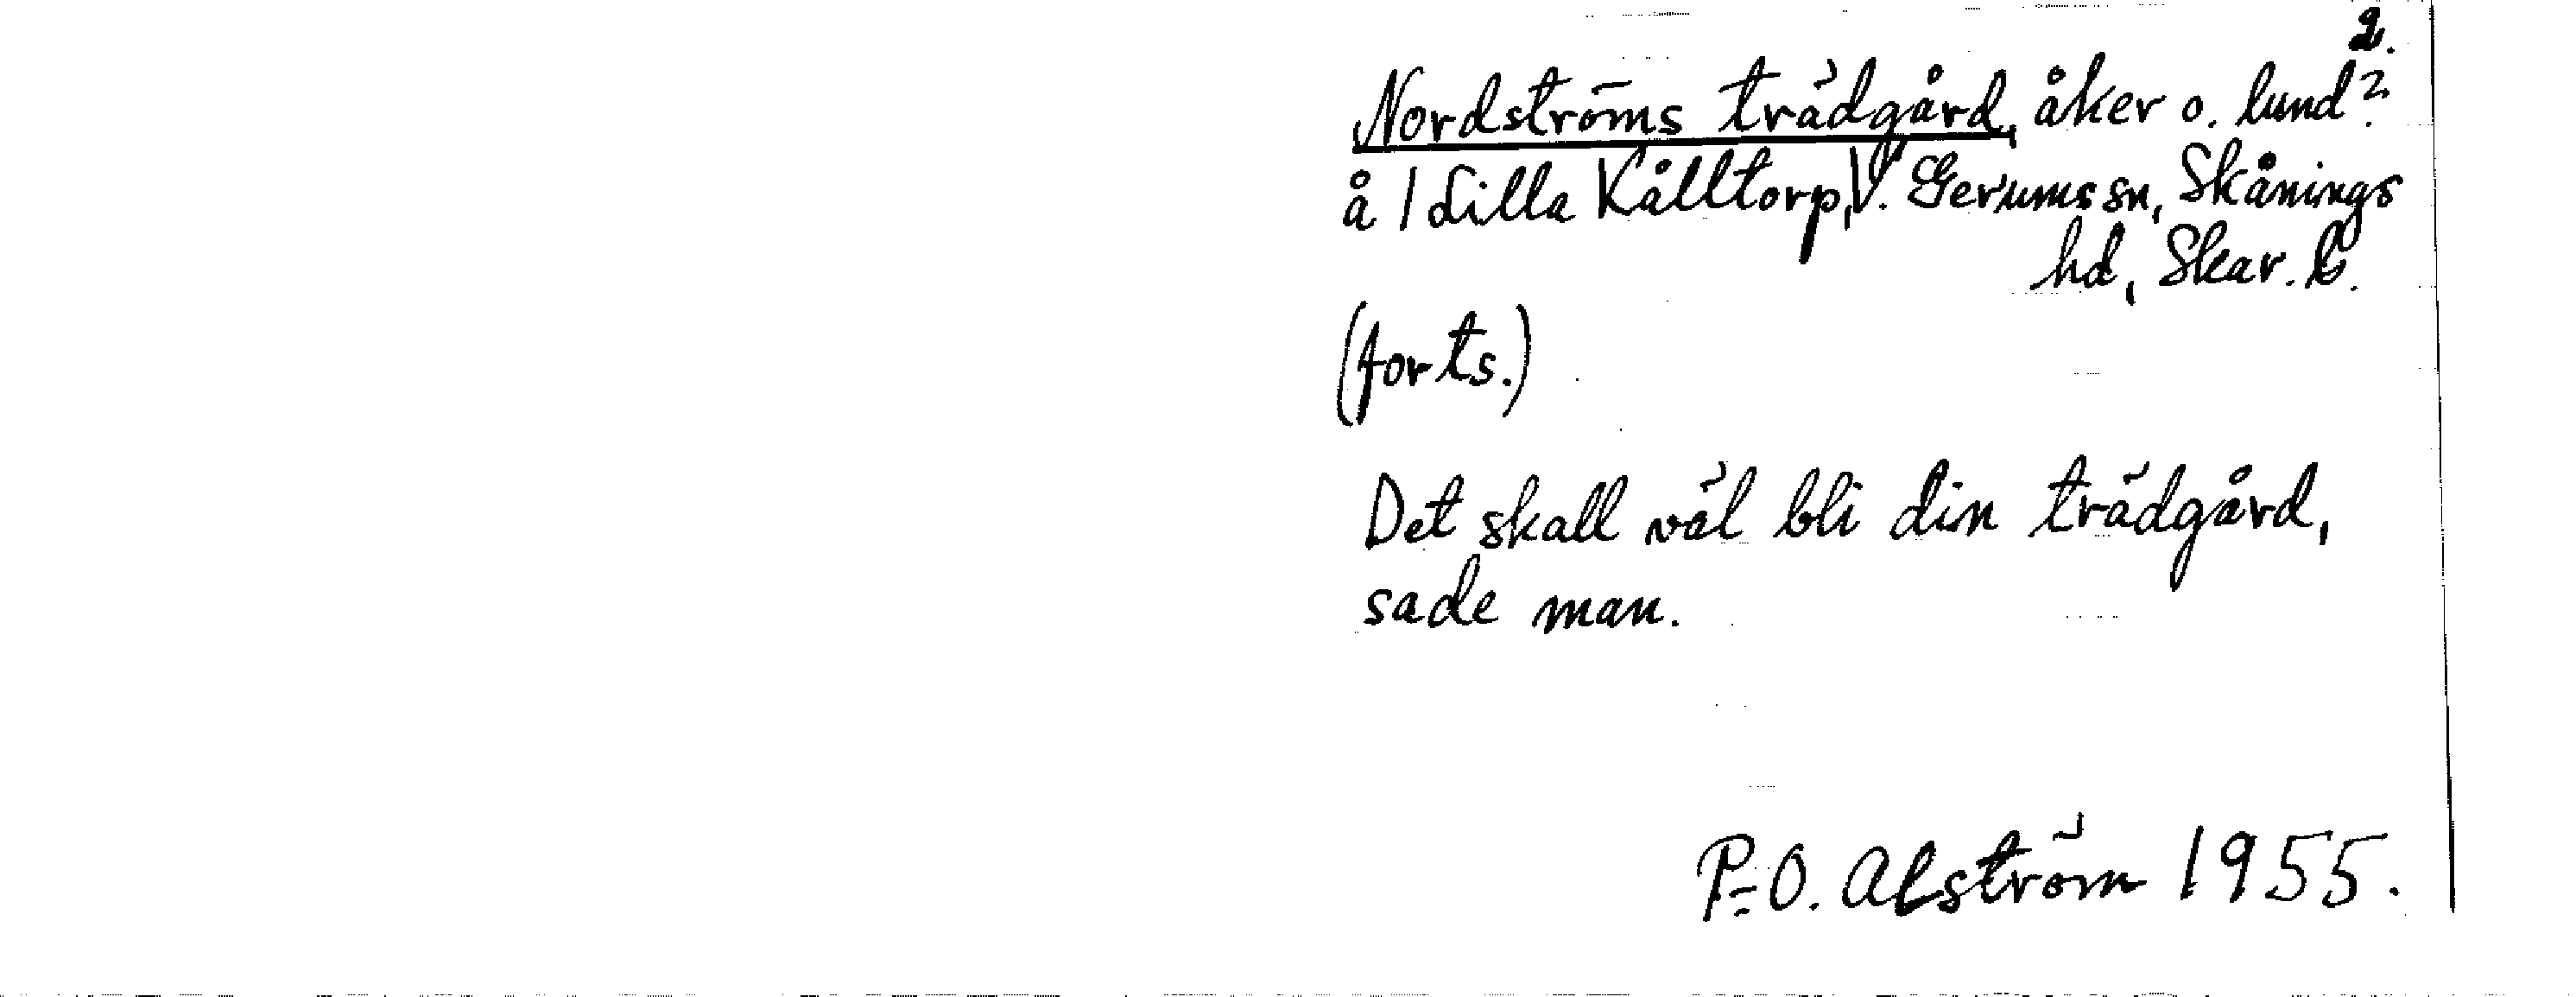 2.
Nordströms trädgård, åker o. lund?
å 1 Lilla Kålltorp, V. Gerums sn, Skånings
hd, Skar. b.
(forts.)
Det skall väl bli din trädgård,
sade man.
P.-O. Alström 1955.